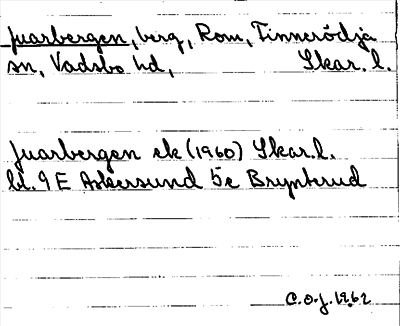 Juarbergen, berg, Rom, Tinnerödja
sn, Vadsbo hd, Skar. l.
Juarbergen ek (1960) Skar. l.
bl. 9 E Askersund 5e Brynterud
C.O.J. 1962